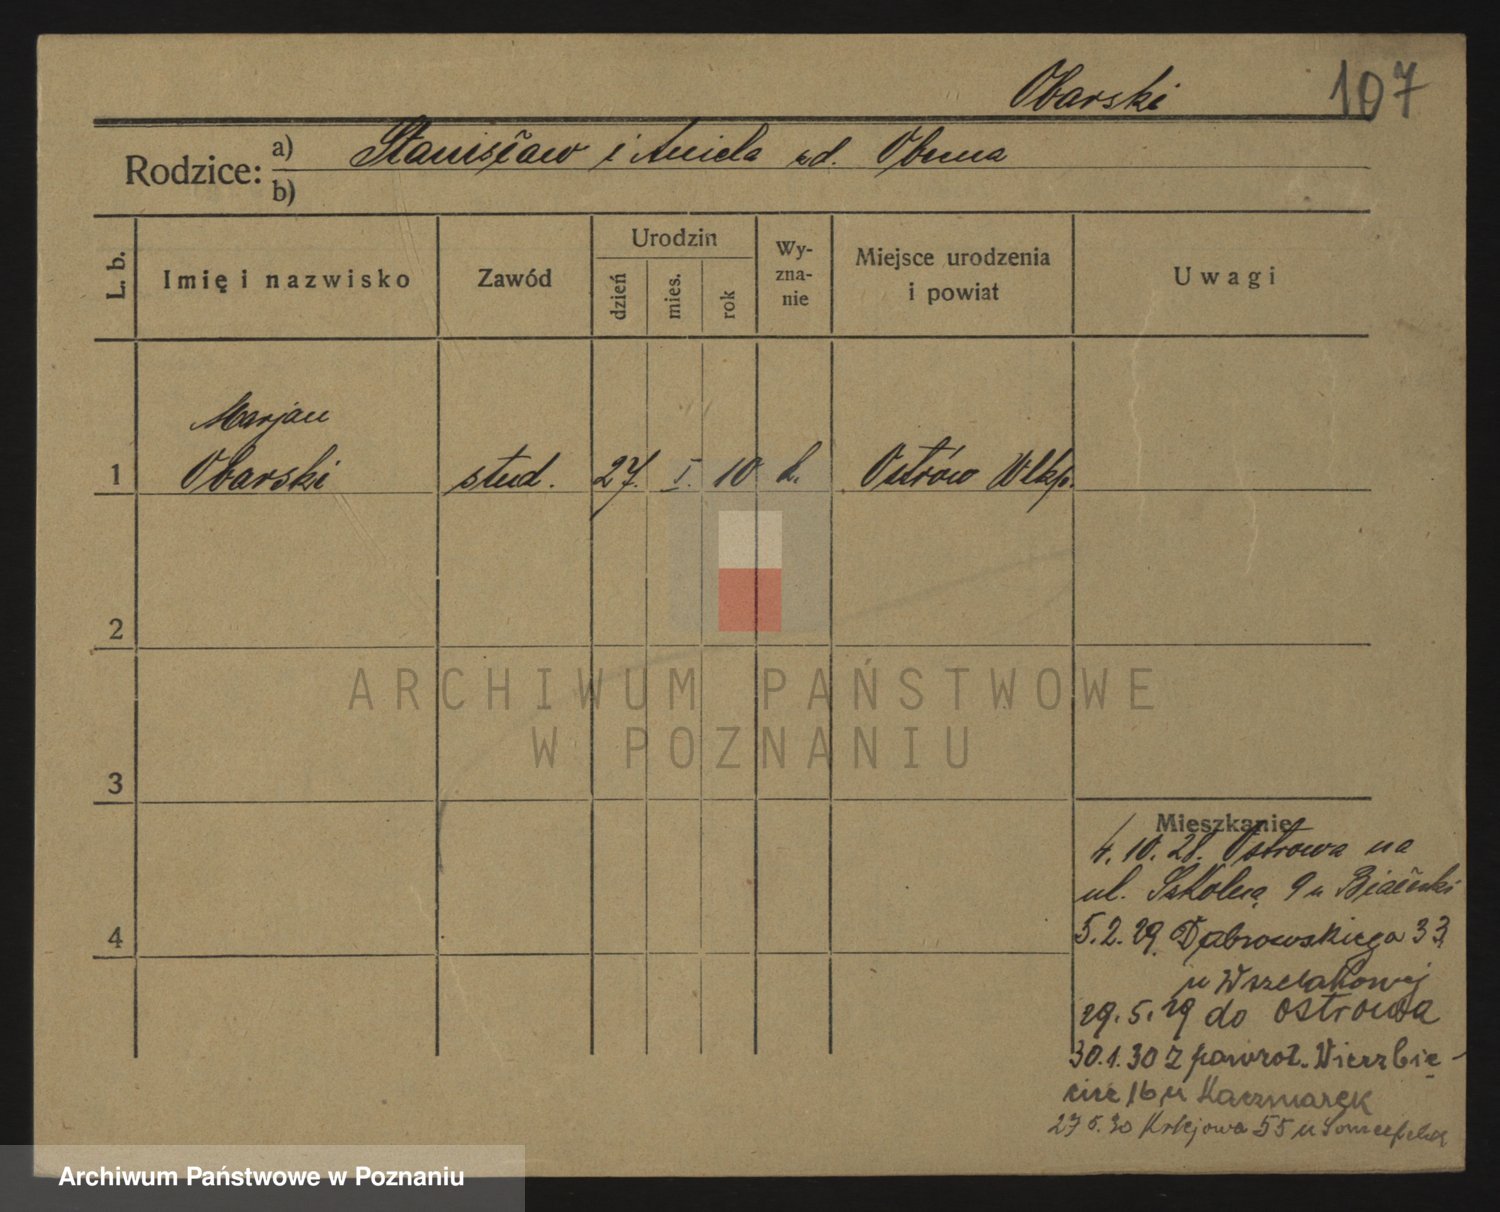 Obarski 107
Rodzice: a) Stanisław i Aniela zd. Obuma
b)
L. b. Imię i nazwisko Zawód Urodzin dzień mies. rok Wy-zna-nie Miejsce urodzenia i powiat Uwagi
Marjan
1 Obarski stud. 27. I. 10 k. Ostrów Wlkp.
2
3
Mieszkanie
4. 10. 28. Ostrowa na
ul. Szkolną 9 u Białecki
4
5. 2. 29. Dąbrowskiego 33
u Wszelakowej
29. 5. 29 do Ostrowa
30. 1. 30 z powrot. Wierzbię-
cice 16 u Kaczmarek
27 5. 30 Kolejowa 55 u
ARCHIWUM PAŃSTWOWE
W POZNANIU
Archiwum Państwowe w Poznaniu